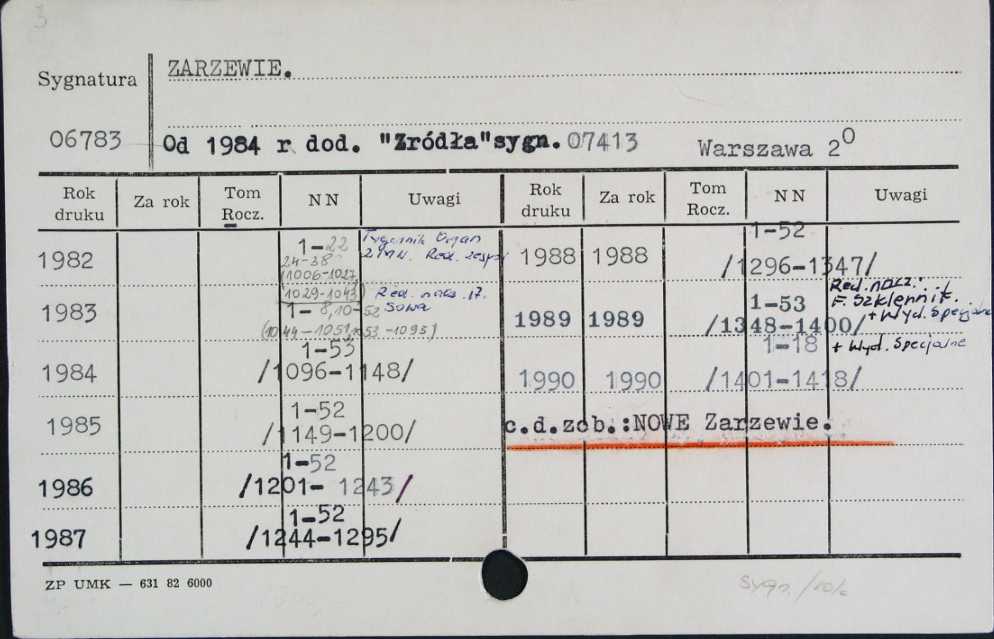 3
ZARZEWIE.
Sygnatura
06783 Od 1984 r dod. "Zródła"sygn. 07413 Warszawa 2⁰
Rok druku Za rok Tom Rocz. N N Uwagi Rok druku Za rok Tom Rocz. N N Uwagi
1982 1-22 Tygodnik Organ
24-38 ZMW. Red. zespół
(1006-1027,
1029-1043) Red. nacz. W.
1983 1-8,10-52 Sowa
(1044-1051,1053-1095)
1984 1-53
/1096-1148/
1985 1-52
/1149-1200/
1986 1-52
/1201- 1243/
1987 1-52
/1244-1295/
1988 1988 1-52
/1296-1347/
1989 1989 1-53 Red. nacz.:
/1348-1400/ F. Szklennik.
+ Wyd. Specjalne
1990 1990 1-18 + Wyd. Specjalne
/1401-1418/
c.d.zob.:NOWE Zarzewie.
ZP UMK — 631 82 6000
Sygn.